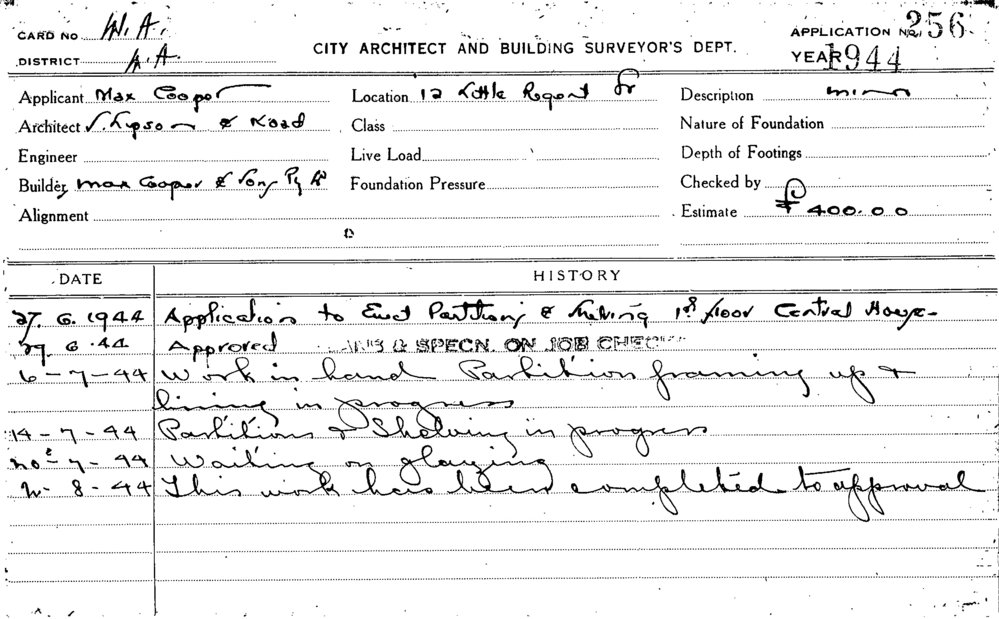 CARD NO. W.A. APPLICATION No. 256
DISTRICT W.A. CITY ARCHITECT AND BUILDING SURVEYOR'S DEPT. YEAR 1944
Applicant Max Cooper Location 12 Little Regent St Description minor
Architect S. Lipson & Kaad Class Nature of Foundation
Engineer Live Load Depth of Footings
Builder Max Cooper & Sons Pty Ld Foundation Pressure Checked by
Alignment Estimate £ 400.0.0
DATE HISTORY
27. 6. 1944 Application to Erect Partitions & Shelving 1st floor Central House
29 6.44 Approved ANS & SPECN. ON JOB CHEC
6-7-44 Work in hand Partition framing up &
lining in progress
14-7-44 Partitions & Shelving in progress
7-44 Waiting on glazing
8-44 This work has been completed to approval